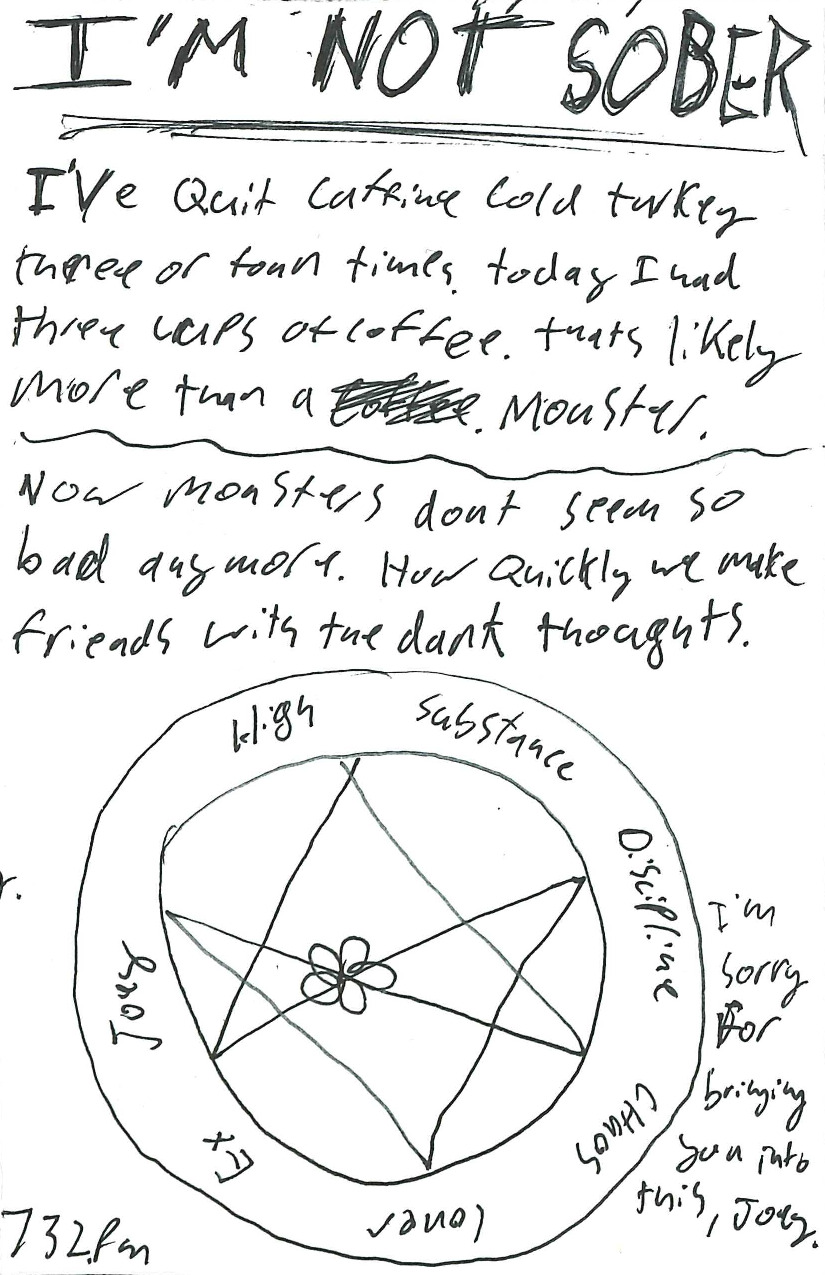 I'M NOT SOBER
I'Ve Quit Caffeine Cold turkey
three or four times. today I had
three cups of coffee. thats likely
more than a Monster.
Now monsters dont seem so
bad anymore. How Quickly we make
friends with the dark thoughts.
High
Substance
Discipline
CHaos
Lover
Ex
Joey
r.
I'm
sorry
for
bringing
you into
this, Joey.
732pm